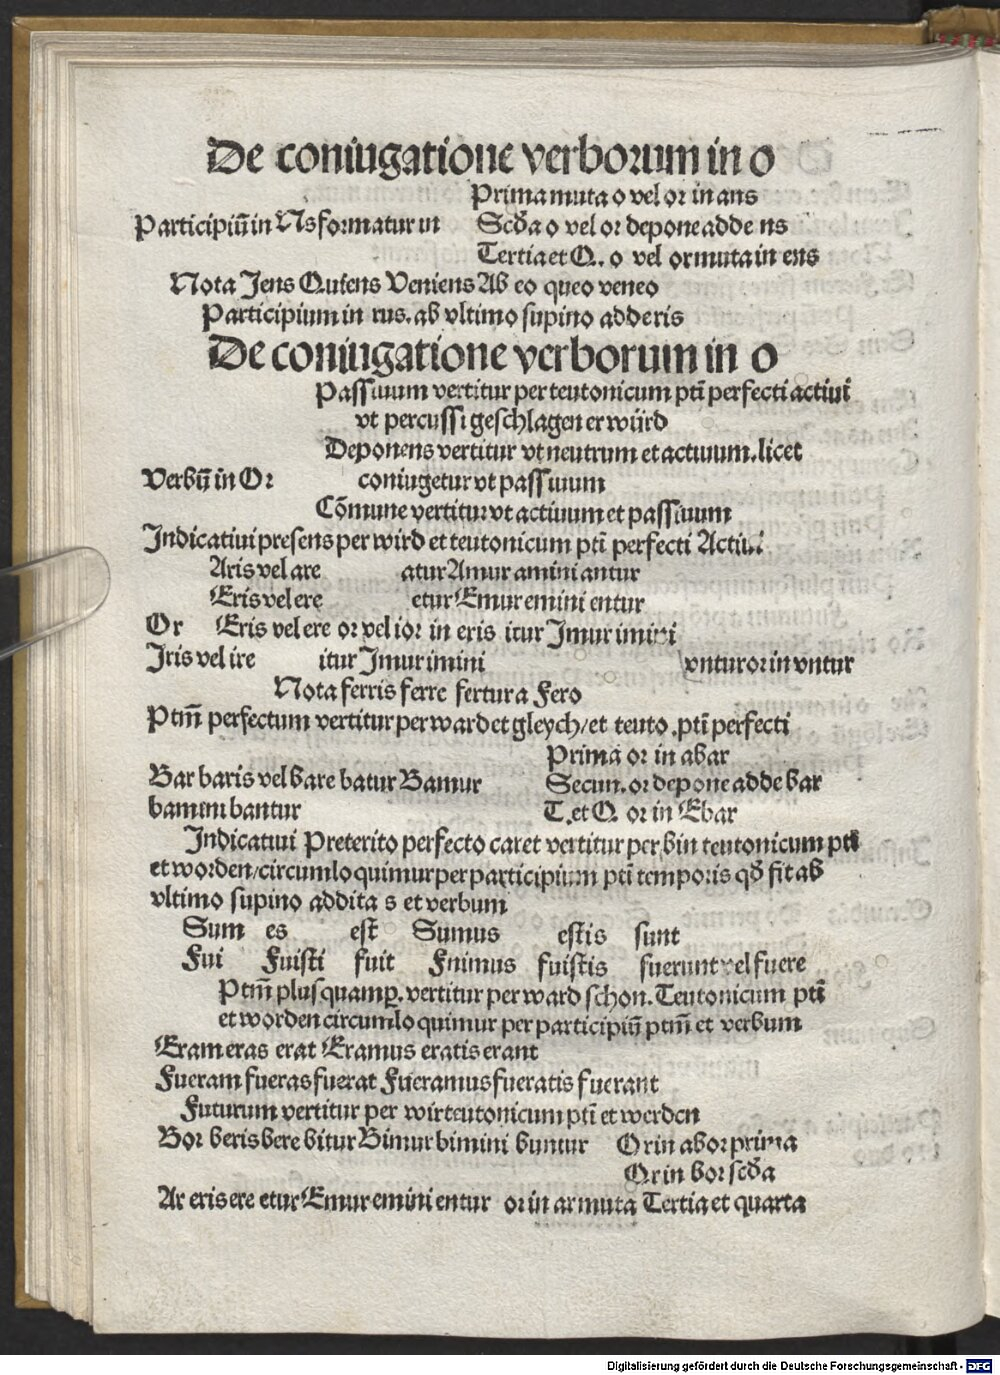 De coniugatione verborum in o
Prima muta o vel or in ans
Participiū in Ns formatur in Scđa o vel or depone adde ns
Tertia et Q. o vel or muta in ens
Nota Jens Quiens Veniens Ab eo queo veneo
Participium in rus. ab vltimo supino adde ris
De coniugatione verborum in o
Passiuum vertitur per teutonicum ptī perfecti actiui
vt percussi geschlagen er würd
Deponens vertitur vt neutrum et actiuum. licet
Verbū in Or coniugetur vt passiuum
Cōmune vertitur vt actiuum et passiuum
Indicatiui presens per wird et teutonicum ptī perfecti Actiui
Aris vel are atur Amur amini antur
Eris vel ere etur Emur emini entur
Or Eris vel ere or vel ior in eris itur Jmur imini
Iris vel ire itur Jmur imini vntur or in vntur
Nota ferris ferre fertur a Fero
Ptm̄ perfectum vertitur per ward et gleych/et teuto .ptī perfecti
Prima or in abar
Bar baris vel bare batur Bamur Secun. or depone adde bar
bamini bantur T. et Q. or in Ebar
Indicatiui Preterito perfecto caret vertitur per bin teutonicum ptī
et worden/circumloquimur per participium ptī temporis qđ fit ab
vltimo supino addita s et verbum
Sum es est Sumus estis sunt
Fui Fuisti fuit Fnimus fuistis fuerunt vel fuere
Ptm̄ plusquamp. vertitur per ward schon. Teutonicum ptī
et worden circumloquimur per participiū ptm̄ et verbum
Eram eras erat Eramus eratis erant
Fueram fueras fuerat Fueramus fueratis fuerant
Futurum vertitur per wir teutonicum ptī et werden
Bor beris bere bitur Bimur bimini buntur Or in abor prima
Or in bor scđa
Ar eris ere etur Emur emini entur or in ar muta Tertia et quarta
Digitalisierung gefördert durch die Deutsche Forschungsgemeinschaft - DFG